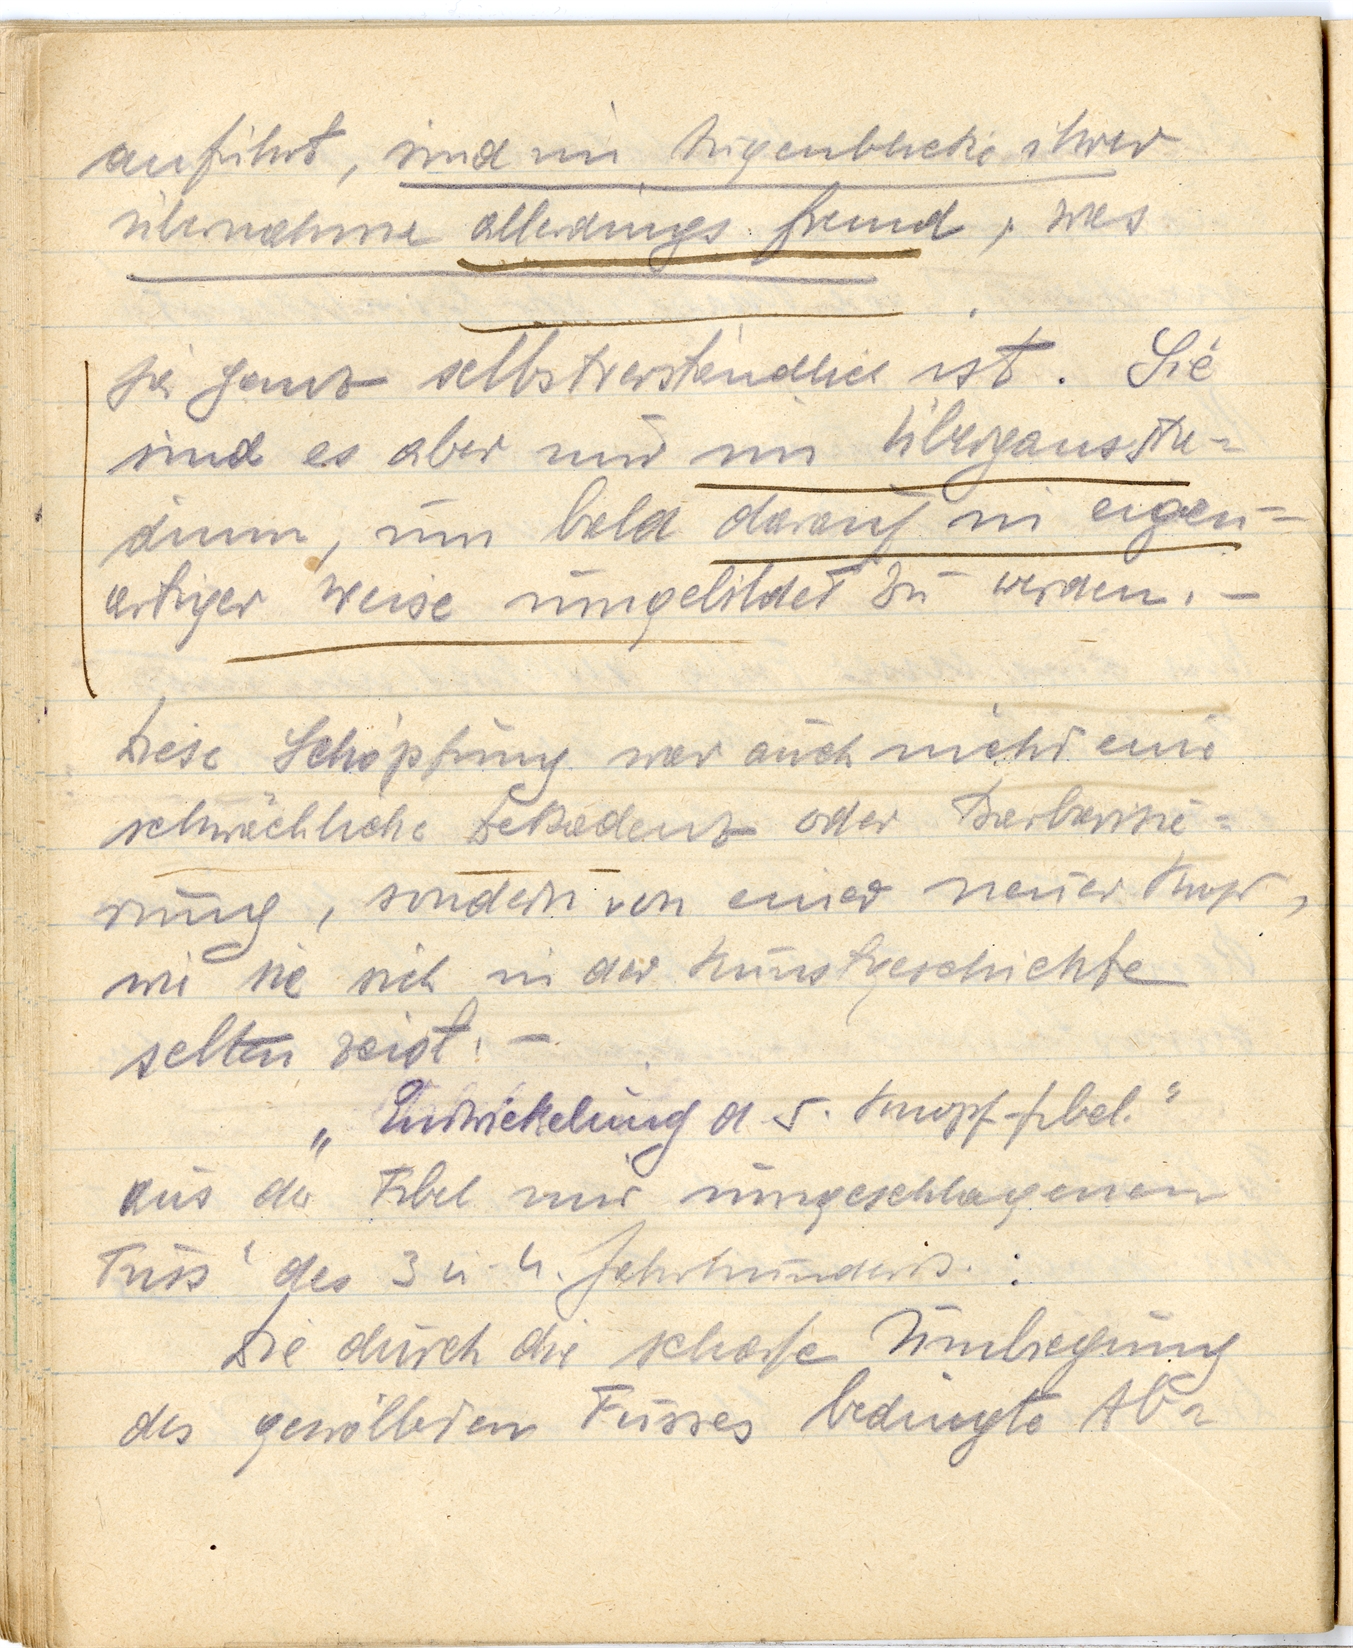 anführt, sind im Augenblicke ihrer
übernahme allerdings fremd, was
ja ganz selbstverständlich ist. Sie
sind es aber nur im Übergansstu-
dium, um bald darauf in eigen-
artiger Weise umgebildet zu werden. -
Diese Schöpfung war auch nicht eine
schwächliche Dekadenz oder Barbarisie-
rung, sondern von einer neuer
wie sie sich in der Kunstgeschichte
selten zeigt. -
„Entwickelung d. 5. Knopf-fibel."
aus der Fibel mit umgeschlagenem
Fuss' des 3 u. 4. Jahrhunderts. :
Die durch die scharfe Umbiegung
des gewölbten Fusses bedingte Ab-